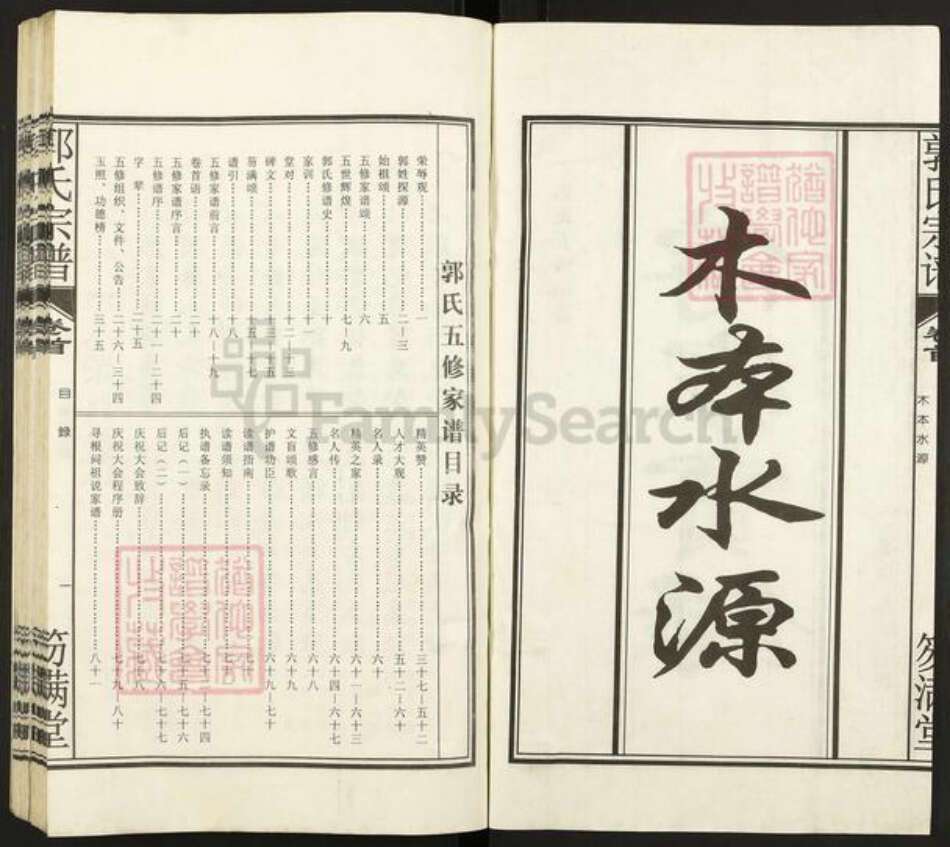 郭氏宗谱
卷首
木本水源
笏满堂
木本水源
郭氏五修家谱目录
荣辱观……一
郭姓探源……二—三
始祖颂……五
五修家谱颂……六
五世辉煌……七—九
郭氏修谱史……十
家训……十一
堂对……十二
碑文……十三—十五
笏满颂……十五—十七
谱引……十八
五修家谱前言……十八—十九
卷首语……二十
五修家谱序言……二十
五修谱序……二十一—二十四
字辈……二十五
五修组织、文件、公告……二十六—三十四
玉照、功德榜……三十五
精英赞……三十七—五十二
人才大观……五十二—六十
名人录……六十
精英之家……六十一—六十三
名人传……六十四—六十七
五修感言……六十八
文盲颂歌……六十九
护谱功臣……六十九—七十
读谱指南
读谱须知
执谱备忘录……七十二—七十四
后记（一）……七十五—七十六
后记（二）……七十六—七十七
庆祝大会致辞……七十八
庆祝大会程序册……七十九—八十
寻根问祖说家谱……八十一
郭氏宗谱
卷首
目録
一
笏满堂
FamilySearch